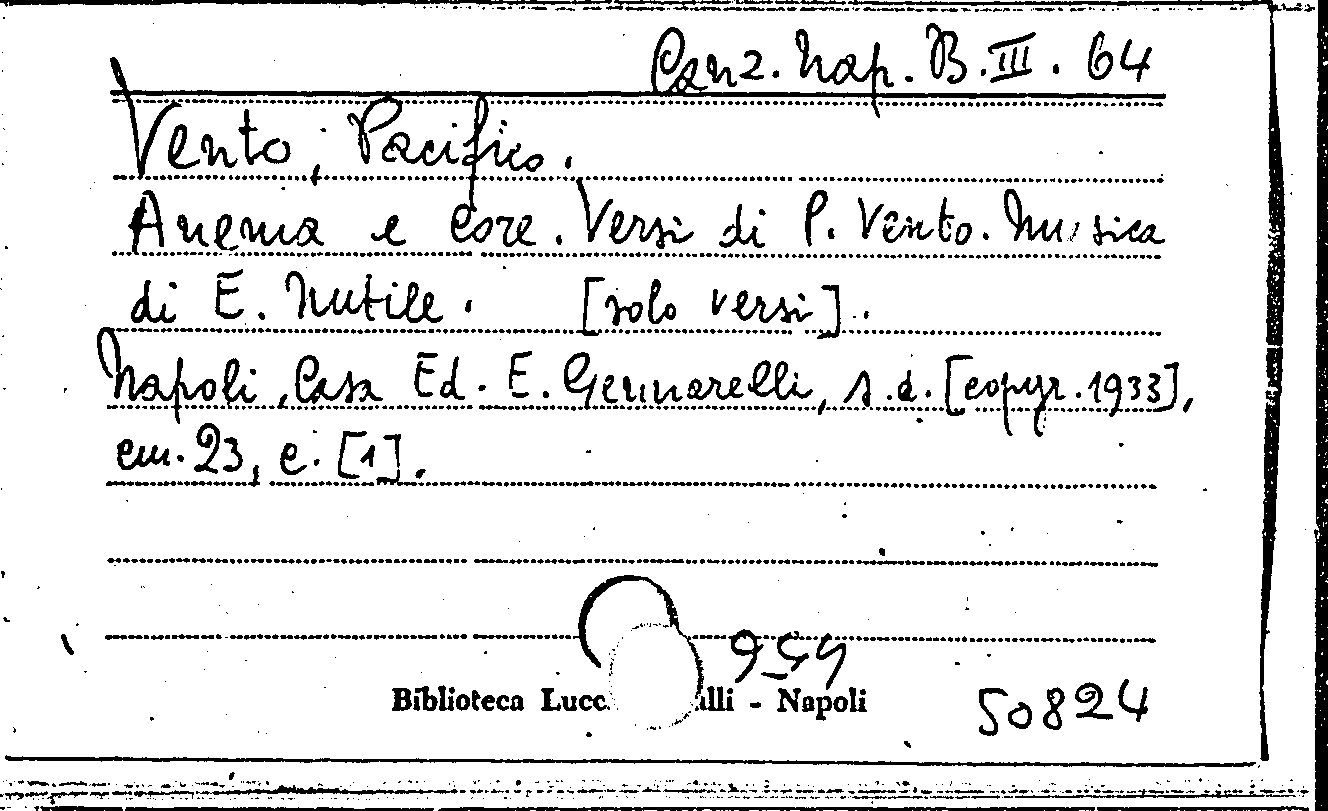 Canz. Nap. B.III. 64
Vento, Pacifico.
Anema e core. Versi di P. Vento. Musica
di E. Nutile. [solo versi].
Napoli, Casa Ed. E. Gennarelli, s.d. [copyr. 1933],
cm. 23, c. [1].
Biblioteca Lucc alli - Napoli
50824